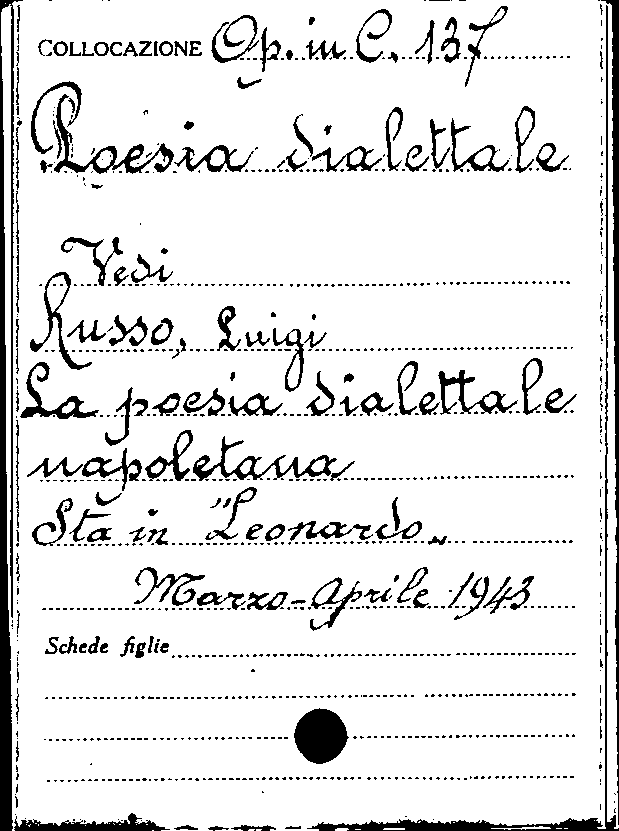 COLLOCAZIONE Op. in C. 137
Poesia dialettale
Vedi
Russo, Luigi
La poesia dialettale
napoletana
Sta in "Leonardo„
Marzo-Aprile 1943
Schede figlie